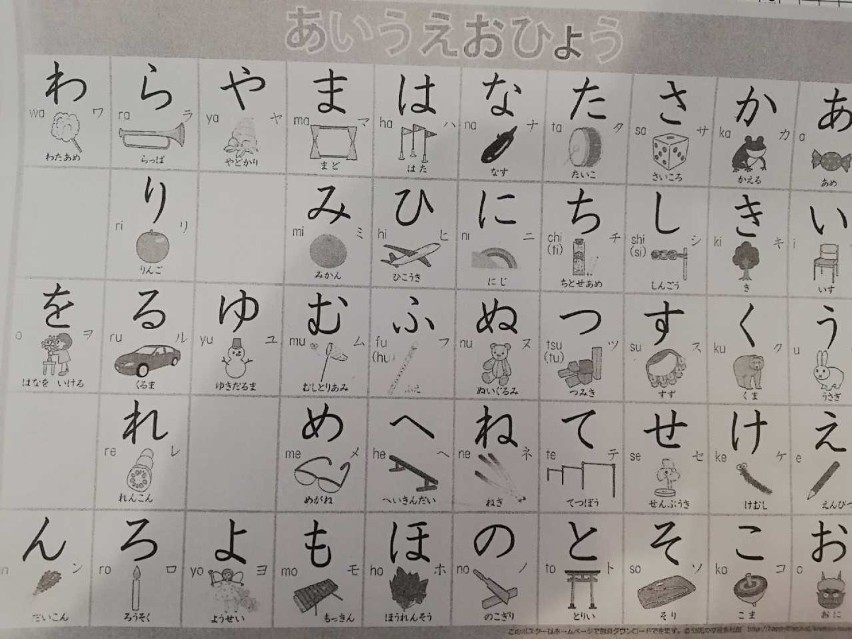 あいうえおひょう
あ
a
あめ
い
i
いす
う
u
うさぎ
え
e
えんぴ
お
o
おに
か
ka カ
かえる
き
ki キ
き
く
ku ク
くま
け
ke ケ
けむし
こ
ko コ
こま
さ
sa サ
さいころ
し
shi (si) シ
しんごう
す
su ス
すず
せ
se セ
せんぷうき
そ
so ソ
そり
た
ta タ
たいこ
ち
chi (ti) チ
ちとせあめ
つ
tsu (tu) ツ
つみき
て
te テ
てつぼう
と
to ト
とりい
な
na ナ
なす
に
ni ニ
にじ
ぬ
nu ヌ
ぬいぐるみ
ね
ne ネ
ねぎ
の
no ノ
のこぎり
は
ha ハ
はた
ひ
hi ヒ
ひこうき
ふ
fu (hu フ
へ
he ヘ
へいきんだい
ほ
ho ホ
ほうれんそう
ま
ma マ
まど
み
mi ミ
みかん
む
mu ム
むしとりあみ
め
me メ
めがね
も
mo モ
もっきん
や
ya ヤ
やどかり
ゆ
yu ユ
ゆきだるま
よ
yo ヨ
ようせい
ら
ra ラ
らっぱ
り
ri リ
りんご
る
ru ル
くるま
れ
re レ
れんこん
ろ
ro ロ
ろうそく
わ
wa ワ
わたあめ
を
o ヲ
はなを いける
ん
n ン
だいこん
このポスターはホームページで無料ダウンロードできます。